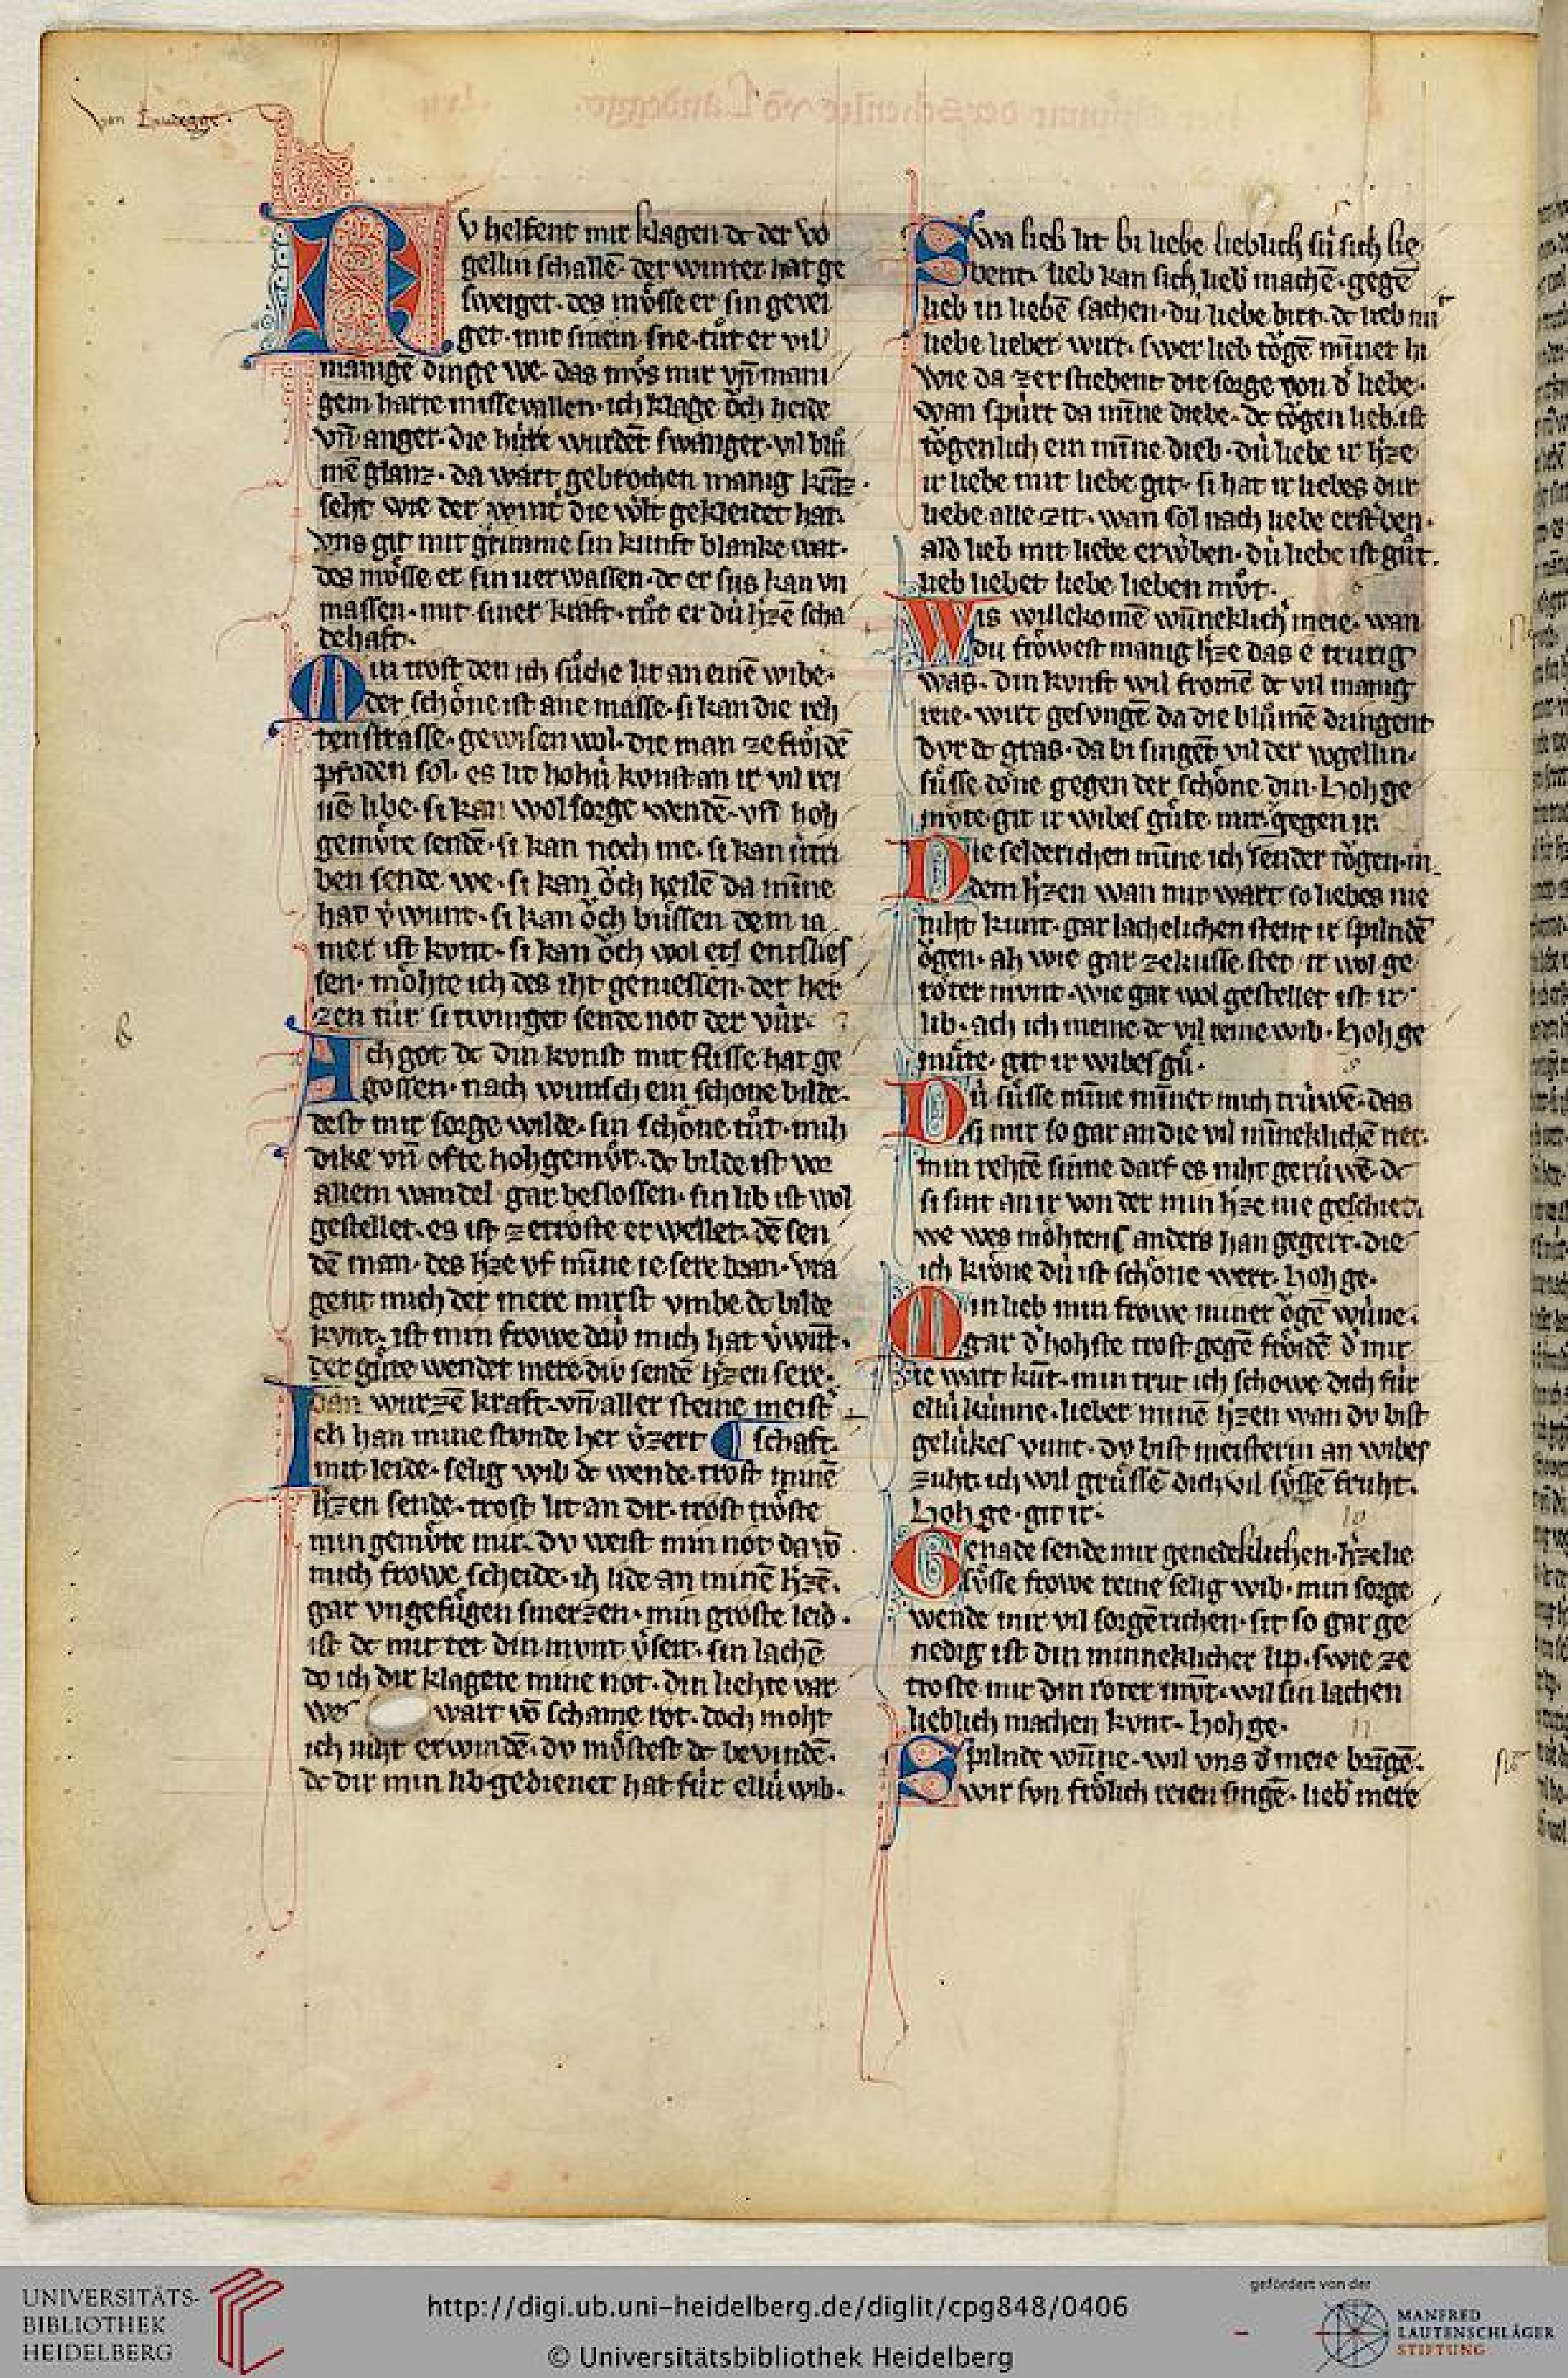 von Landegge.
NV helfent mir klagen dc der vo
gellin schallē. der winter hat ge
sweiget. des mo̊sse er sin gevei
get. mit sinem sne. tůt er vil
manigē dinge we. das mo̊s mir vn̄ mani
gem harte missevallen. ich klage o̍ch heide
vn̄ anger. die hu̍re wurdēt swanger. vil blů
mē glanz. da wart gebrochen manig kranz.
seht wie der wint̍ die wlt gekleidet hat.
vns git mit grimme sin kunft blanke wat.
des mo̊sse er sin verwassen. dc er sus kan vn
massen. mit siner kraft. tůt er dú h̍zē scha
dehaft.
Min trost den ich sůche lit an einē wibe.
der scho̍ne ist ane masse. si kan die reh
ten strasse. gewisen wol. die man ze fro̍idē
pfaden sol. es lit hohú konst an ir vil rei
nē libe. si kan wol sorge wendē. vn̄ hoh
gemu̍te sendē. si kan noch me. si kan úrtri
ben sende we. si kan o̍ch heilē da minne
hat v̍wunt. si kan o̍ch bůssen dem ia
mer ist kvnt. si kan o̍ch wol entslies
sen. mo̍hte ich des iht geniessen. der her
zen túr si twinget sende not der vúr.
Ach got dc din konst mit flisse hat ge
gossen. nach wunsch ein schone bilde.
dest mir sorge wilde. sin scho̍ne tůt. mih
dike vn̄ ofte hohgemůt. dc bilde ist vor
allem wandel gar beslossen. sin lib ist wol
gestellet. es ist ze troste erwellet. dē sen
dē man. des h̍ze vf minne ie sere bran. vra
gent mich der mere mir st vmbe dc bilde
kvnt. ist min frowe dú mich hat v̍wūt.
der gu̍te wendet mere. div sendē h̍zen sere.
ban wurzē kraft. vn̄ aller steine meist̍
Ich han mine stunde her v̍zert ¶ schaft.
mit leide. selig wib dc wende. trost minē
h̍zen sende. trost lit an dir. trost tro̍ste
min gemu̍te mir. dv weist min not da vō
mich frowe scheide. ih lide an minē h̍zē.
gar vngefu̍gen smerzen. min gro̍ste leid.
ist dc mir tet din mvnt v̍seit. sin lachē
do ich dir klagete mine not. din liehte var
we wart vō schame rot. doch moht
ich niht erwindē. dv mo̍stest dc bevindē.
dc dir min lib gedienet hat für ellú wib.
Swa lieb lit bi liebe lieblich sú sich lie
bent. lieb kan sich lieb machē. gegē
lieb in liebē sachen. dú liebe birt. dc lieb mit
liebe lieber wirt. swer lieb to̍gē minnet hi
wie da zerstiebent die sorge von d̍ liebe.
wan spúrt da minne diebe. dc to̍gen lieb. ist
to̍genlich ein minne dieb. dú liebe ir h̍ze
ir liebe mit liebe git. si hat ir liebes dur
liebe alle zit. wan sol nach liebe erst̍ben.
ald lieb mit liebe erw̍ben. dú liebe ist gůt.
lieb liebet liebe lieben mo̊t.
Wis willekomē wūneklich̍ meie. wan
du fro̍west manig h̍ze das e trurig
was. din kvnft wil fromē dc vil manig
reie. wirt gesungē da die blůmē dringent
dvr dc gras. da bi singēt vil der vogellin.
su̍sse do̍ne gegen der scho̍ne din. hohge
mo̍te git ir wibes gu̍te. mir gegen ir.
Die selderichen minne ich sender to̍gen. in
dem h̍zen wan mir wart so liebes nie
niht kunt. gar lachelichen stent ir spilndē
o̍gen. ah wie gar ze kusse stet ir wol ge
ro̍ter mvnt. wie gar wol gestellet ist ir
lib. ach ich meine dc vil reine wib. hoh ge
mu̍te. git ir wibes gu̍.
Dú su̍sse minne minnet mich trúwē. das
si mir so gar an die vil minneklichē riet.
min rehtē sinne darf es niht gerúwē. dc
si sint an ir von der min h̍ze nie geschiet.
we wes mo̍htens anders han gegert. die
ich kro̍ne dú ist scho̍ne wert. hoh ge.
Min lieb min frowe miner o̍gē wūne.
gar d̍ hohste trost gegē fro̍idē d̍ mir
ie wart kūt. min trut ich schowe dich fúr
ellú kúnne. lieber minē h̍zen wan dv bist
gelúkes vunt. dv bist meisterin an wibes
zuht. ich wil gru̍ssē dich vil su̍ssē fruht.
hoh ge. git ir.
Genade sende mir genedeklichen. h̍zelie
su̍sse frowe reine selig wib. min sorge
wende mir vil sorgērichen. sit so gar ge
nedig ist din minneklicher lip. swie ze
troste mir din roter mūt. wil sin lachen
lieblich machen kvnt. hoh ge.
Spilnde wūne. wil vns d̍ meie bringē.
wir svn fro̍lich reien singē. lieb mere
b
10
11
UNIVERSITÄTS-
BIBLIOTHEK
HEIDELBERG
http://digi.ub.uni-heidelberg.de/diglit/cpg848/0406
© Universitätsbibliothek Heidelberg
gefördert von der
MANFRED
LAUTENSCHLÄGER
STIFTUNG